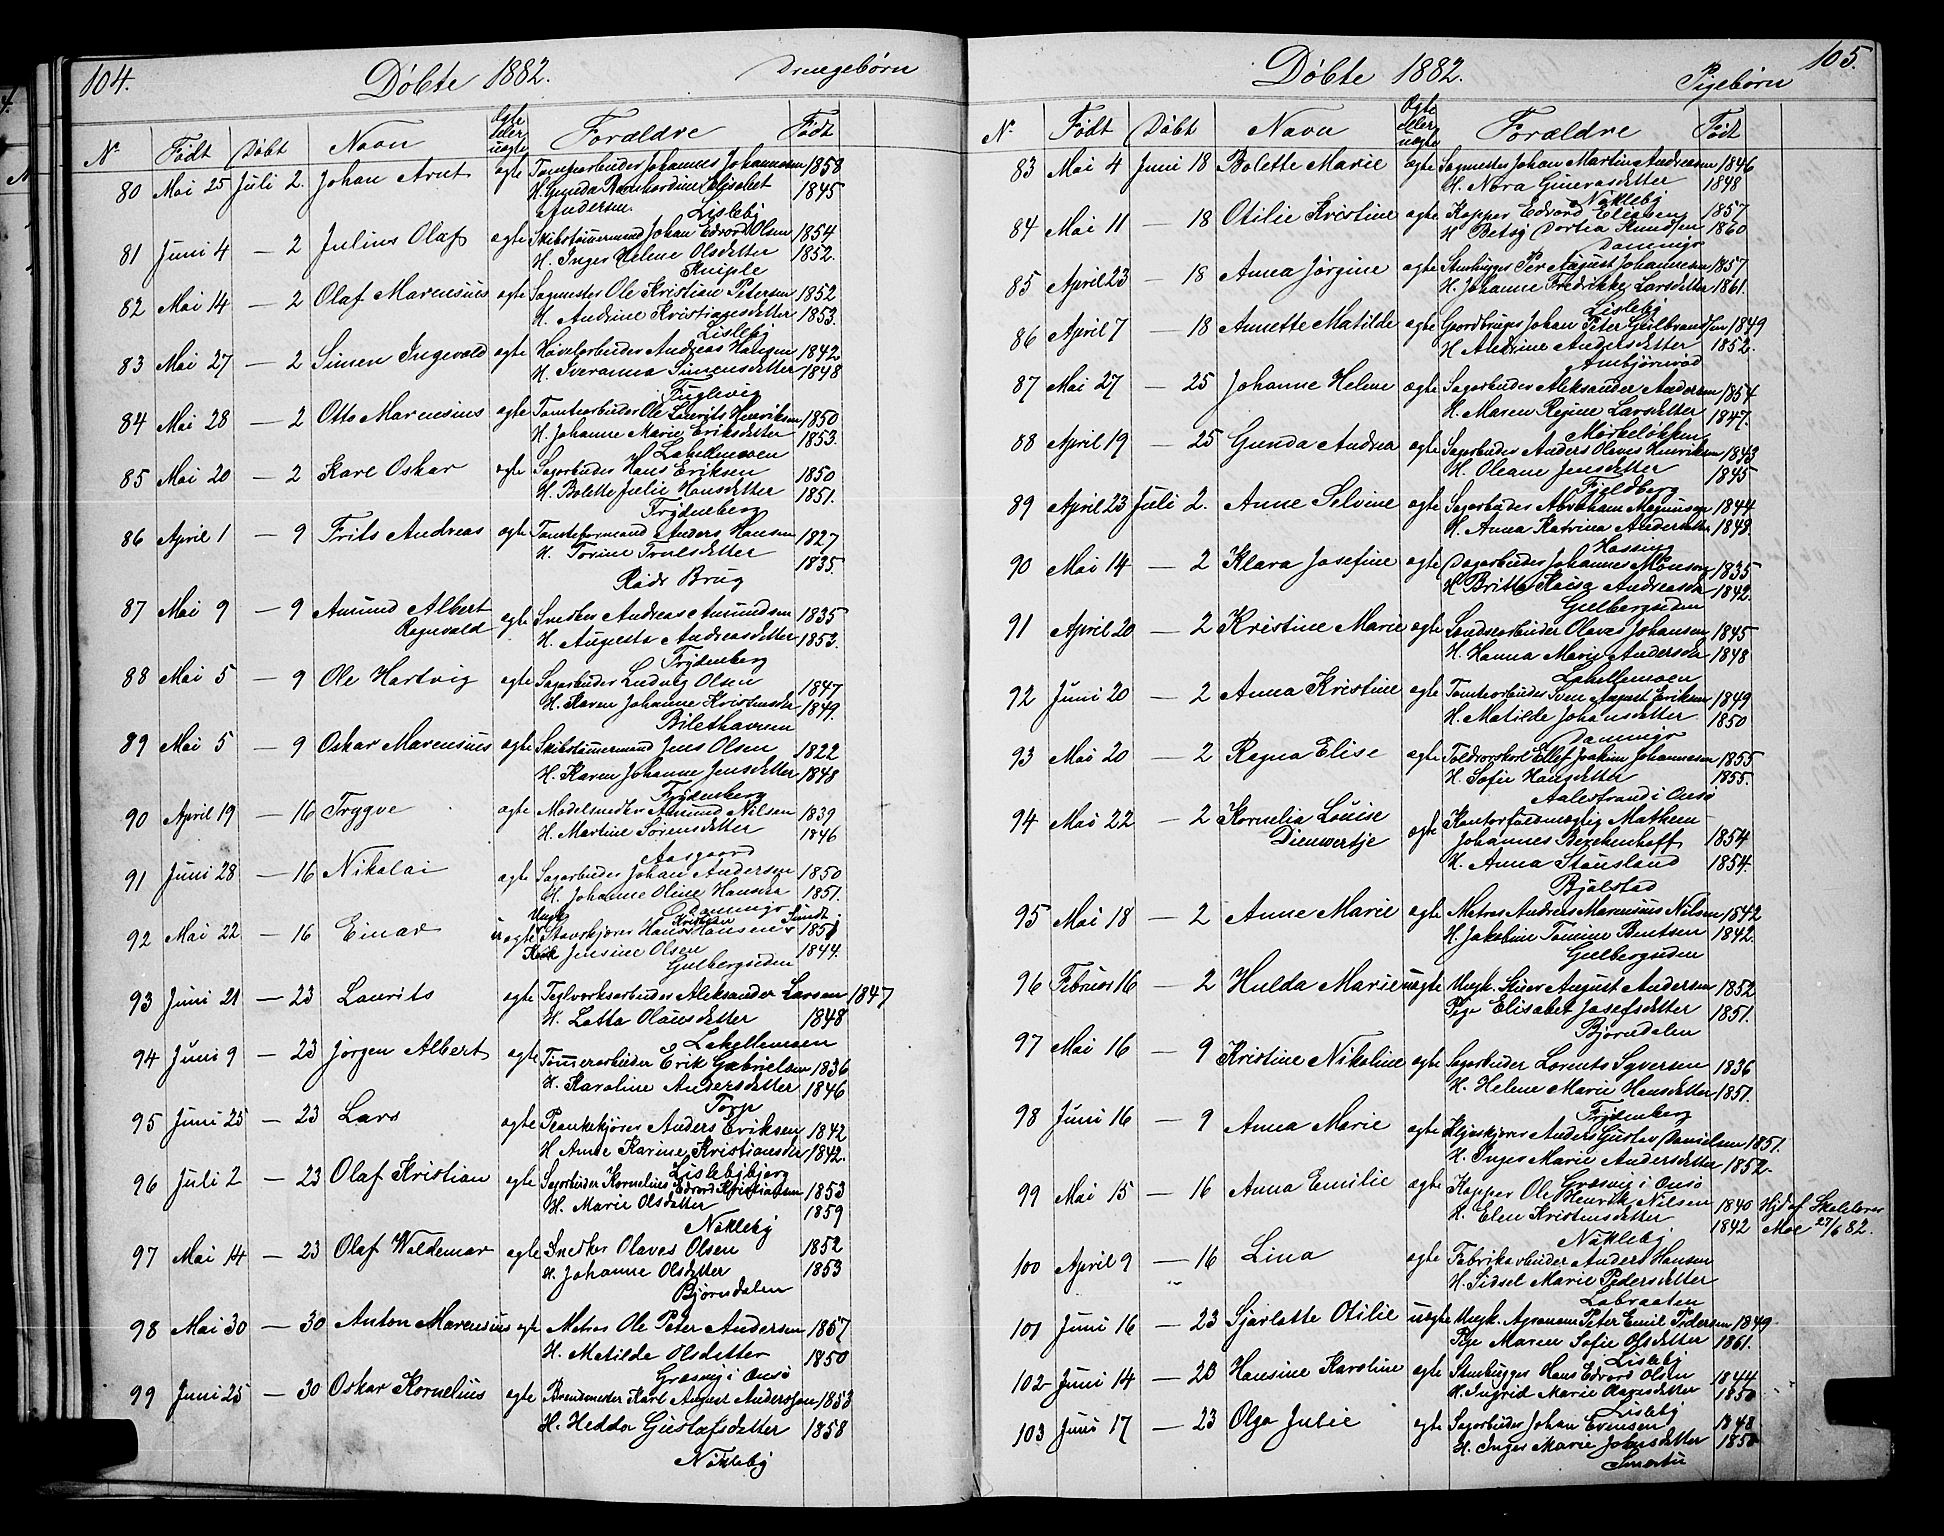 104.
Døbte 1882.
Drengebørn
No Født Døbt Navn Ægte eller uægte Forældre Født
80 Mai 25 Juli 2. Johan Arnt ægte Tomtearbeider Johannes Johannesen 1858
H. Gunda Elisabet 1845
Andersen. Lisleby
81 Juni 4 — 2 Julius Olaf ægte Skibstømermand Johan Edvard Olsen 1854
H. Inger Helene Olsdetter 1852.
Kniple
82 Mai 14 — 2 Olaf Marensius ægte Sagmester Ole Kristian Petersen 1852
H. Andrine Kristiansdetter 1853.
Lisleby
83 Mai 27 — 2 Simen Ingevald ægte Høvelarbeider Andreas Haagen 1842
H. Sveranna Simensdetter 1848
Fuglevig
84 Mai 28 — 2 Otto Marensius ægte Tomtearbeider Ole Laurits Henriksen 1850
H. Johanne Marie Eriksdetter 1853.
Lahellemoen
85 Mai 20 — 2 Karl Oskar ægte Sagarbeider Hans Eriksen 1850
H. Bolette Julie Hansdetter 1851.
Frydenberg
86 April 1 — 9 Frits Andreas ægte Tomteformand Anders Hansen 1827
H. Torine Trulsdetter 1835.
Røds Brug
87 Mai 9 — 9 Amund Albert ægte Snedker Andreas Amundsen 1835
Ragnvald H. Augusta Andreasdetter 1853.
Frydenberg
88 Mai 5 — 9 Ole Hartvig ægte Sagarbeider Ludvig Olsen 1847
H. Karen Johanne Kristensdr 1849.
Bilethaven
89 Mai 5 — 9 Oskar Marensius ægte Skibstømermand Jens Olsen 1822
H. Karen Johanne Jensdetter 1848
Frydenberg
90 April 19 — 16 Trygve ægte Amund Nilsen 1839
H. Martine Sørensdetter 1846
Aasgaard
91 Juni 28 — 16 Nikolai ægte Sagarbeider Johan Andersen 1850
H. Johanne Oline Hansen 1851.
Damminga
92 Mai 22 — 16 Einar uægte Ungk Stavskjører Hans Kristian Hansen 1851
Jensine Olsen 1844.
Gulbergsiden
93 Juni 21 — 23 Laurits ægte Teglverksarbeider Aleksander Larsen 1847
H. Lotta Olausdetter 1848
Lahellemoen
94 Juni 9 — 23 Jørgen Albert ægte Tømmerarbeider Erik Gabrielsen 1836
H. Karoline Andersdetter 1846
Torp
95 Juni 25 — 23 Lars ægte Plankekjører Anders Eriksen 1842
H. Anne Karine Kristiansdr 1842.
Lislebybjerg
96 Juli 2 — 23 Olaf Kristian ægte Sagarbeider Kornelius Edvard Kristiansen 1853
H. Marie Olsdetter 1859
Nøkleby
97 Mai 14 — 23 Olaf Waldemar ægte Snedker Olaves Olsen 1852
H. Johanne Olsdetter 1853
Bjørndalen
98 Mai 30 — 30 Anton Marensius ægte Matros Ole Peter Andersen 1857
H. Matilde Olsdetter 1850
Græsvig i Onsø
99 Juni 25 — 30 Oskar Kornelius ægte Karl August Anderssen 1853
H. Hedda Gustafsdetter 1858
Nøkleby
105.
Døbte 1882.
Pigebørn
No Født Døbt Navn Ægte eller uægte Forældre Født
83 Mai 4 Juni 18 Bolette Marie ægte Sagmester Johan Martin Andreasen 1846
H. Nora Gunerasdetter 1848
Nøkleby
84 Mai 11 — 18 Otilie Kristine ægte Kopper Edvard Eliassen 1857
H. Betsy Dortea Knudsen 1860
Damminga
85 April 23 — 18 Anna Jørgine ægte Stenhugger Per August Johannesen 1857
H. Johanne Fredrikke Larsdetter 1861.
Lisleby
86 April 7 — 18 Annette Matilde ægte Gaardbruger Johan Peter Gulbrandsen 1849
H. Andrine Andersdetter 1852.
Ambjørnrød
87 Mai 27 — 25 Johanne Helene ægte Sagarbeider Aleksander Andersen 1854
H. Maren Regine Larsdetter 1847.
Mørkeløkken
88 April 19 — 25 Gunda Andrea ægte Sagarbeider Anders Olaves Henriksen 1843
H. Oleane Jensdetter 1845
Fjeldberg
89 April 23 Juli 2. Anne Selvine ægte Sagarbeider Abraham Magnusen 1844
H. Anna Katrina Andersdatter 1848.
Hassing
90 Mai 14 — 2 Klara Josefine ægte Dagarbeider Johannes Monsen 1835
H. Britta Kaisa Andreasdr 1842.
Gulbergsiden
91 April 20 — 2 Kristine Marie ægte Landsarbeider Olaves Johansen 1845
H. Hanna Marie Andersdr 1848
Lahellemoen
92 Juni 20 — 2 Anna Kristine ægte Tomtearbeider Sven August Eriksen 1849
H. Matilde Johansdetter 1850
Damminga
93 Mai 20 — 2 Ragna Elise ægte Toldrorskarl Ellef Joakim Johannesen 1855
H. Sofie Hansdetter 1855.
Aalestrand i Onsø
94 Mai 22 — 2 Kornelia Louise ægte Kontorfuldmægtig Mathem
Dienwertje Johannes Berckenhoff 1854
H. Anna Stousland 1854.
Bjølstad
95 Mai 18 — 2 Anne Marie ægte Matros Andreas Marensius Nilsen 1842
H. Jakobine Tomine Bentsen 1842.
Gulbergsiden
96 Februar 16 — 2 Hulda Marie uægte Ungk. Skuer August Andersen 1852
Pige Elisabet Josefsdetter 1851.
Bjørndalen
97 Mai 16 — 9 Kristine Nikoline ægte Sagarbeider Lorents Syversen 1836
H. Helene Marie Hansdetter 1851.
Frydenberg
98 Juni 16 — 9 Anna Marie ægte Anders Gustav Danielsen 1851.
H. Inger Marie Andersdetter 1852.
Græsvig i Onsø
99 Mai 15 — 16 Anna Emilie ægte Kopper Ole Henrik Nilsen 1840 Hjd af Skolelærer
H. Elen Kristensdetter 1842 Moe 27/6 82.
Nøkleby
100 April 9 — 16 Lina ægte Fabrikarbeider Anders Hansen
H. Sidsel Marie Pedersdetter
Labraaten
101 Juni 16 — 23 Sjarlotte Otilie uægte Ungk. Peter Emil Pedersen 1849
Pige Maren Sofie Olsdetter 1861.
Lisleby
102 Juni 14 — 23 Hansine Karoline ægte Stenhugger Hans Edvard Olsen 1844
H. Ingrid Marie Olavesdetter 1850
Lisleby
103 Juni 17 — 23 Olga Julie ægte Sagarbeider Johan Evensen 1848
H. Inger Marie Johnsdetter 1850
Smertu